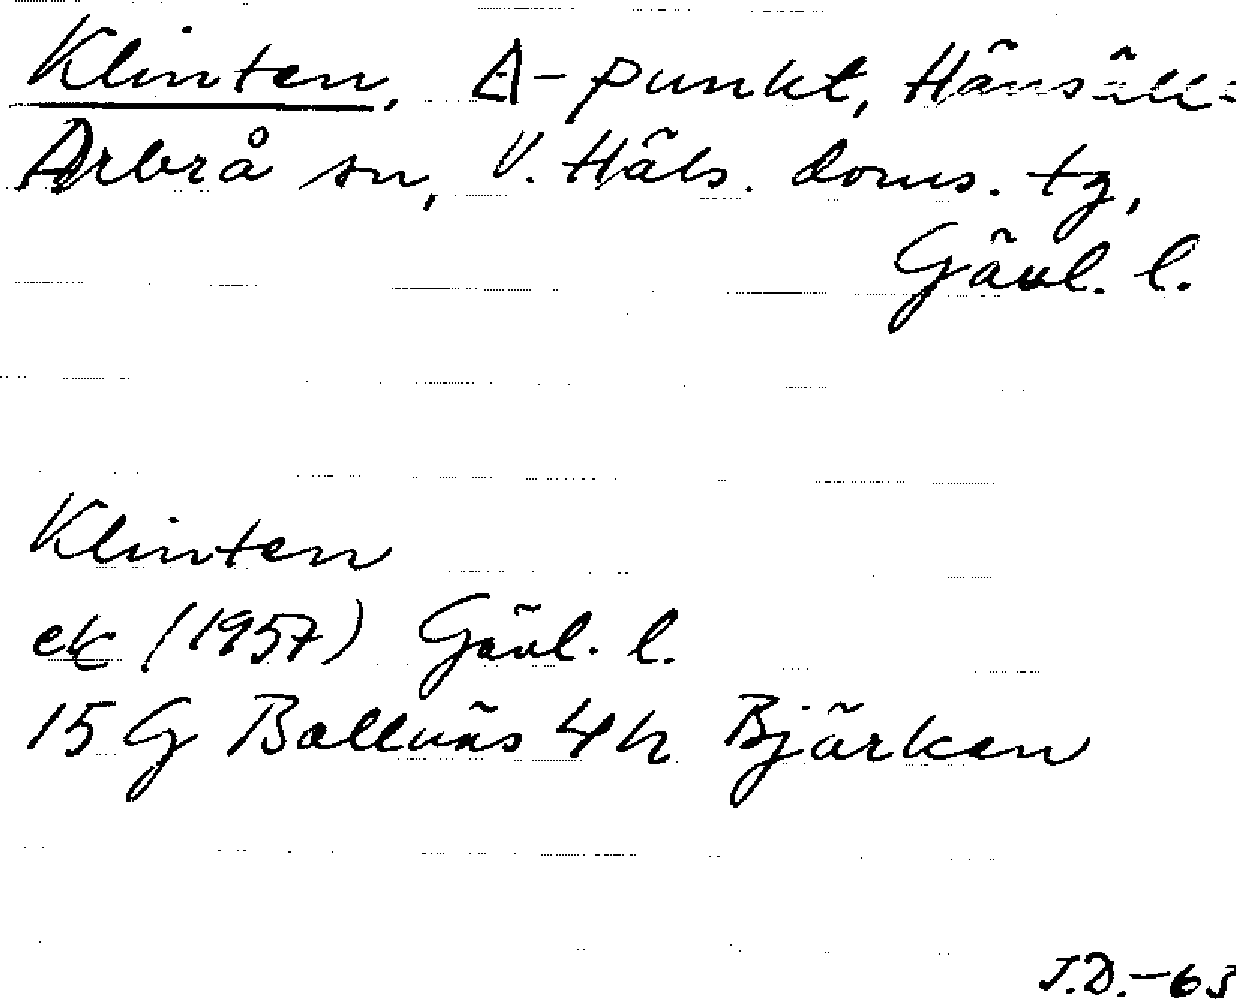 Klinten, A-punkt, Hänsäll-
Arbrå sn, V. Häls. doms. tg,
Gävl. l.
Klinten
ek (1957) Gävl. l.
15 G Bollnäs 4 h Bjärkan
J.D.-63